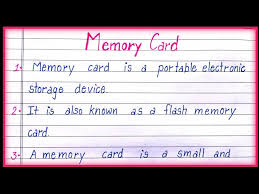 Memory Card
1. Memory card is a portable electronic
storage device.
2. It is also known as a flash memory
card.
3. A memory card is a small and